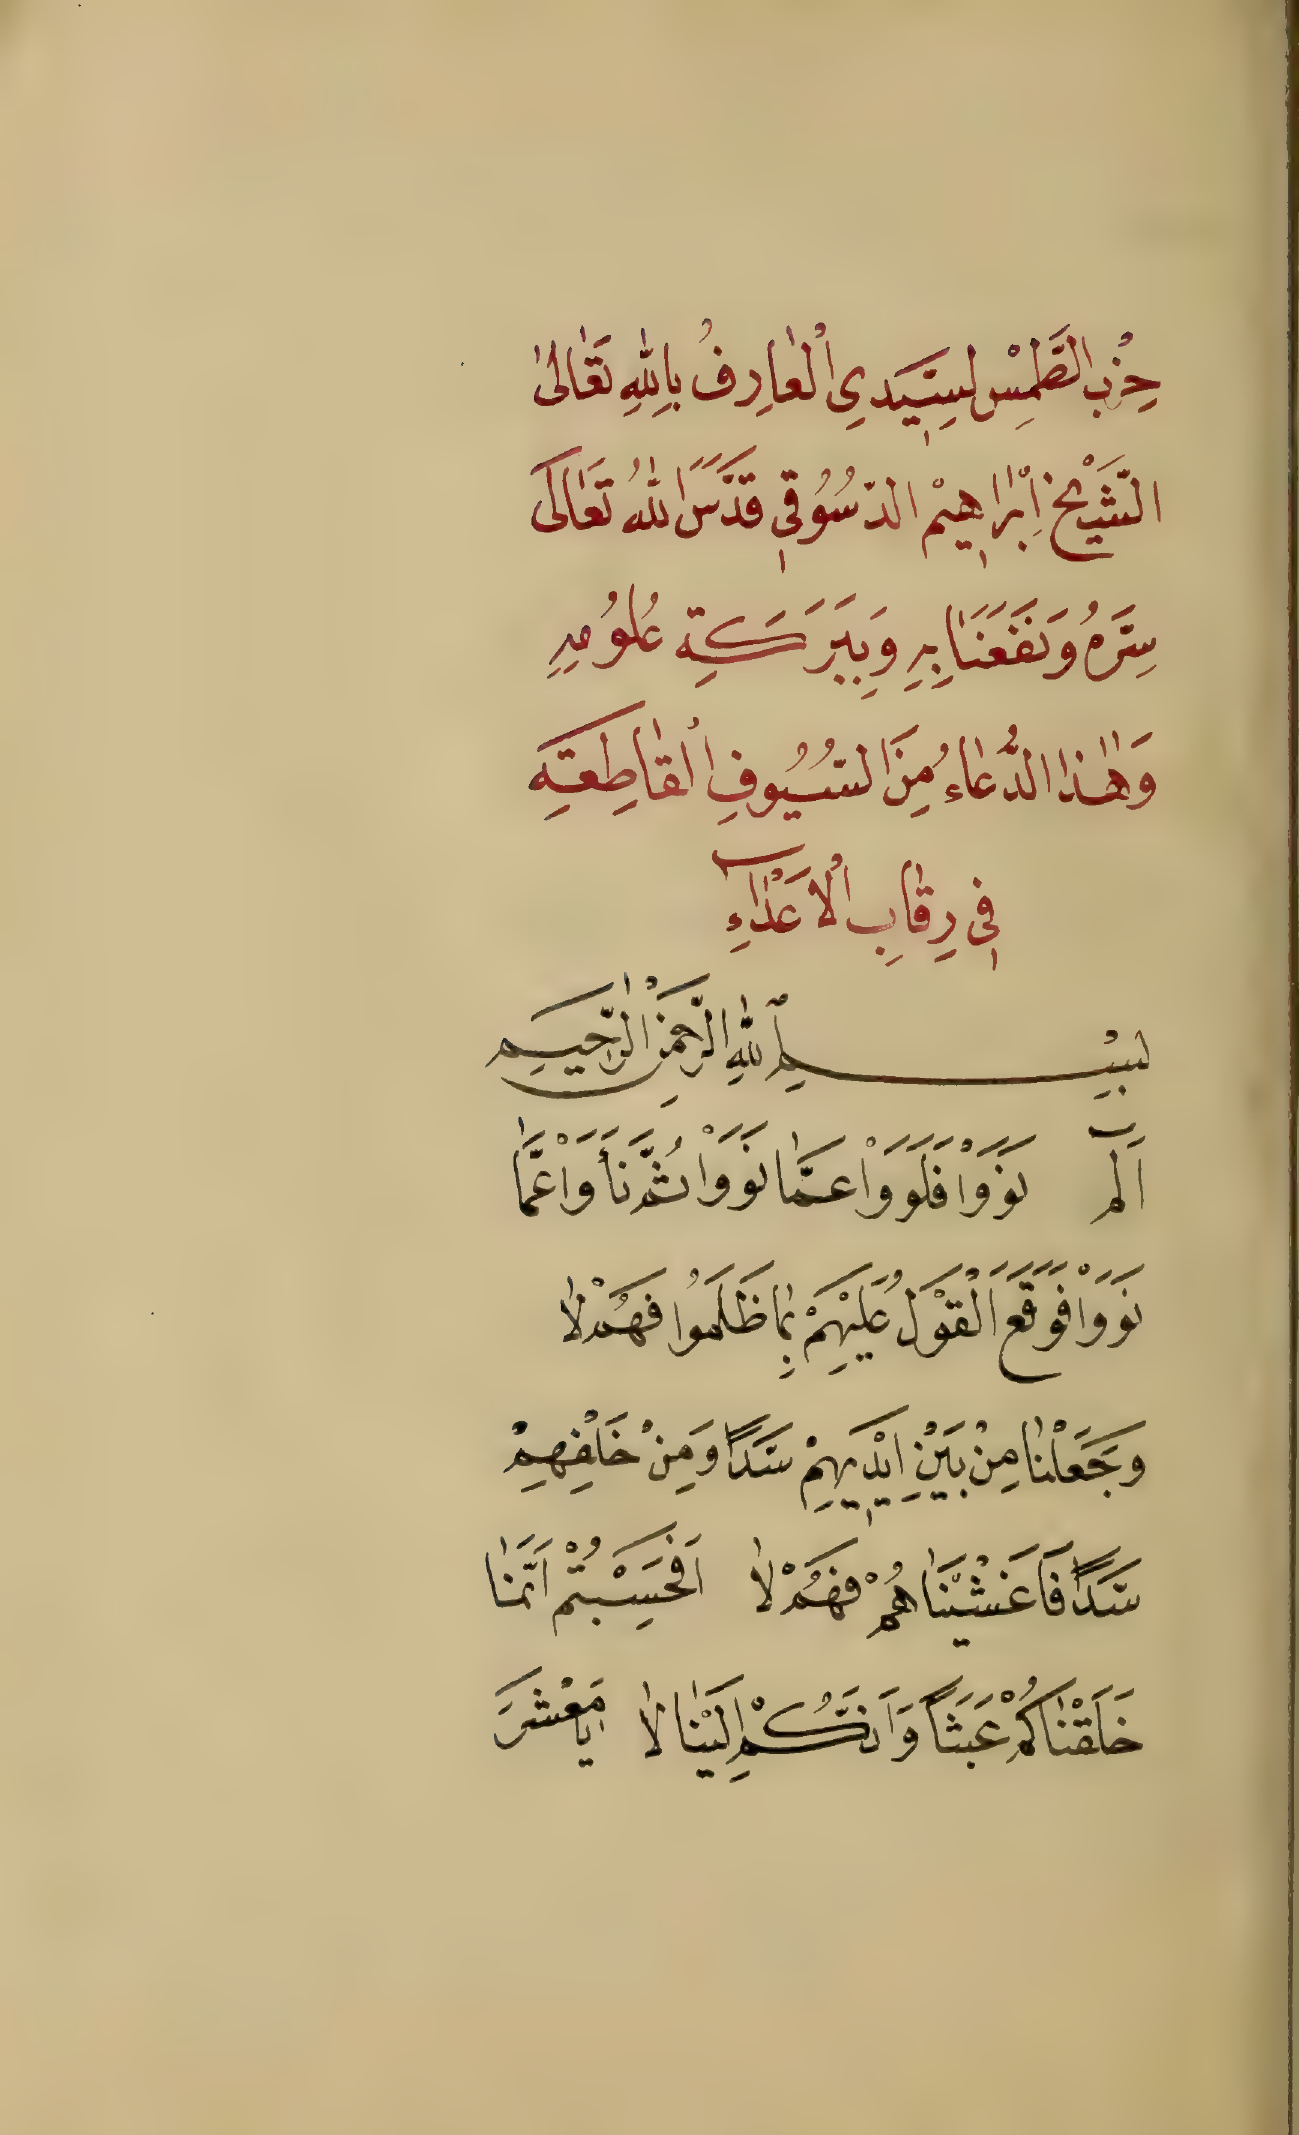 حِزْبُ الطَّمْسِ لِسَيِّدِي الْعَارِفُ بِاللّٰهِ تَعَالٰى
الشَّيْخْ اِبْرَاهِيْمْ الدّسُوُقىِ قَدَّسَ اللّٰهُ تَعَالَى
سِرَّهُ وَنَفَعَنَا بِهِ وَبِبَرَكَتِهِ عُلُوُمِهِ
وَهٰذَا الدُّعَاءُ مِنَ السُّيُوفِ الْقَاطِعَةِ
فىِ رِقَابِ الْاَعْدَآءِ
بِسْمِ اللّٰهِ الرَّحْمٰنِ الرَّحِيمِ
اَلٓمٓ نَوَوْا فَلَوَوْا عَمَّا نَوَوْا ثُمَّ نَأَوْا عَمَّا
نَوَوْا فَوَقَعَ الْقَوْلُ عَلَيْهِمْ بِمَا ظَلَمُوا فَهُمْ لَا
وَجَعَلْنَا مِنْ بَيْنِ اَيْدِيهِمْ سَدًّا وَمِنْ خَلْفِهِمْ
سَدًّا فَاَغْشَيْنَاهُمْ فَهُمْ لَا اَفَحَسِبْتُمْ اَنَّمَا
خَلَقْنَاكُمْ عَبَثًا وَاَنَّكُمْ اِلَيْنَا لَا يَا مَعْشَرَ